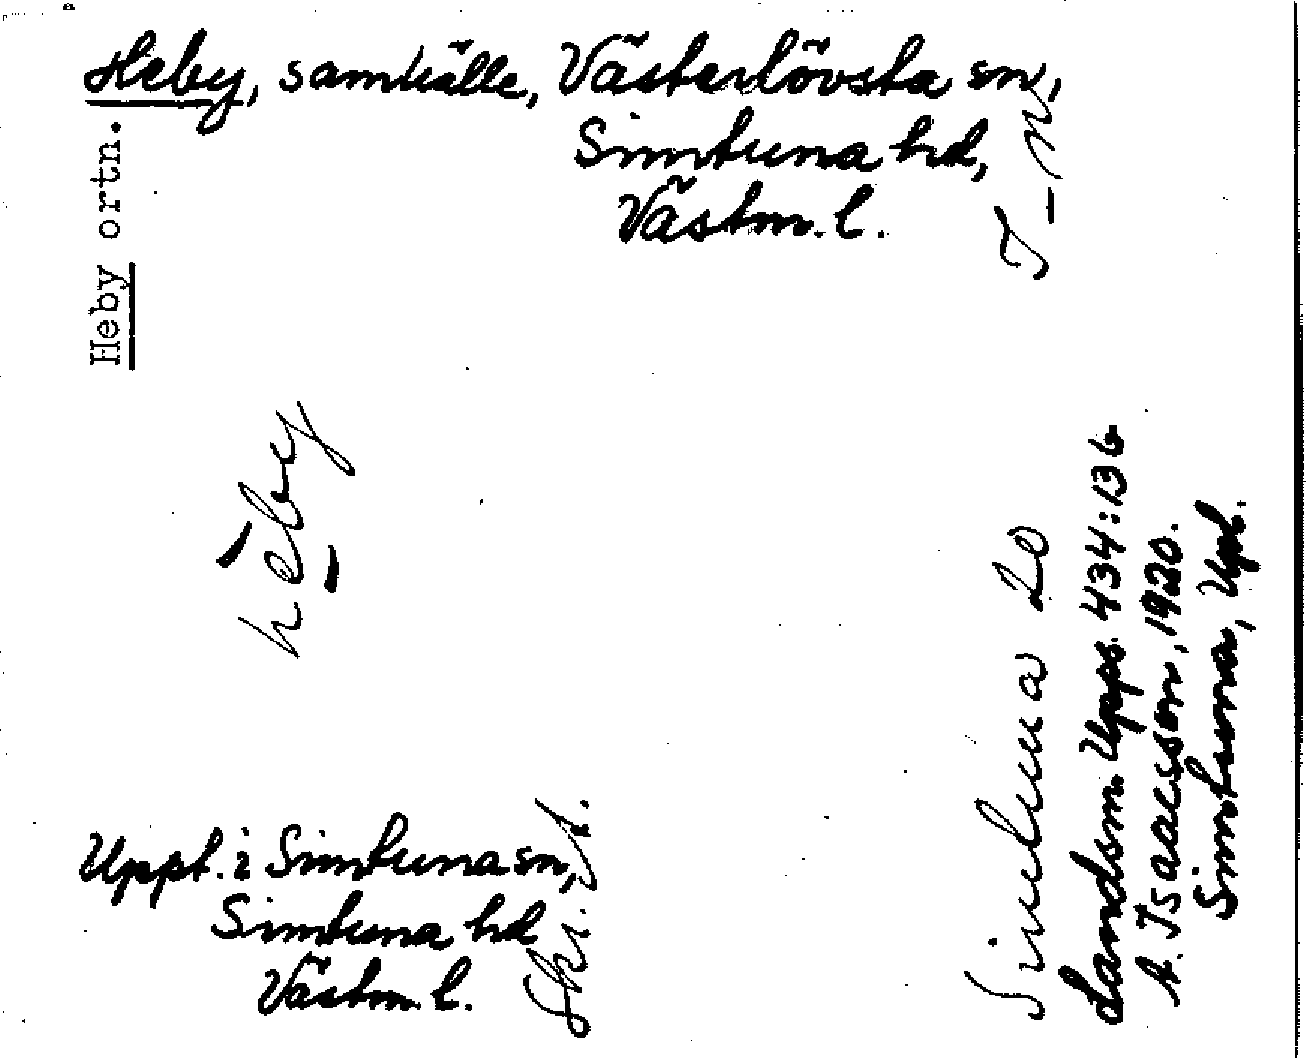 Heby, samhälle, Västerlövsta sn,
Simtuna hd,
Västm. l.
Heby ortn.
heby
Uppt. i Simtuna sn,
Simtuna hd
Västm. l.
Simtuna 20
Landsm. Upps. 434:136
A. Isacsson, 1920.
Simtuna, Upl.